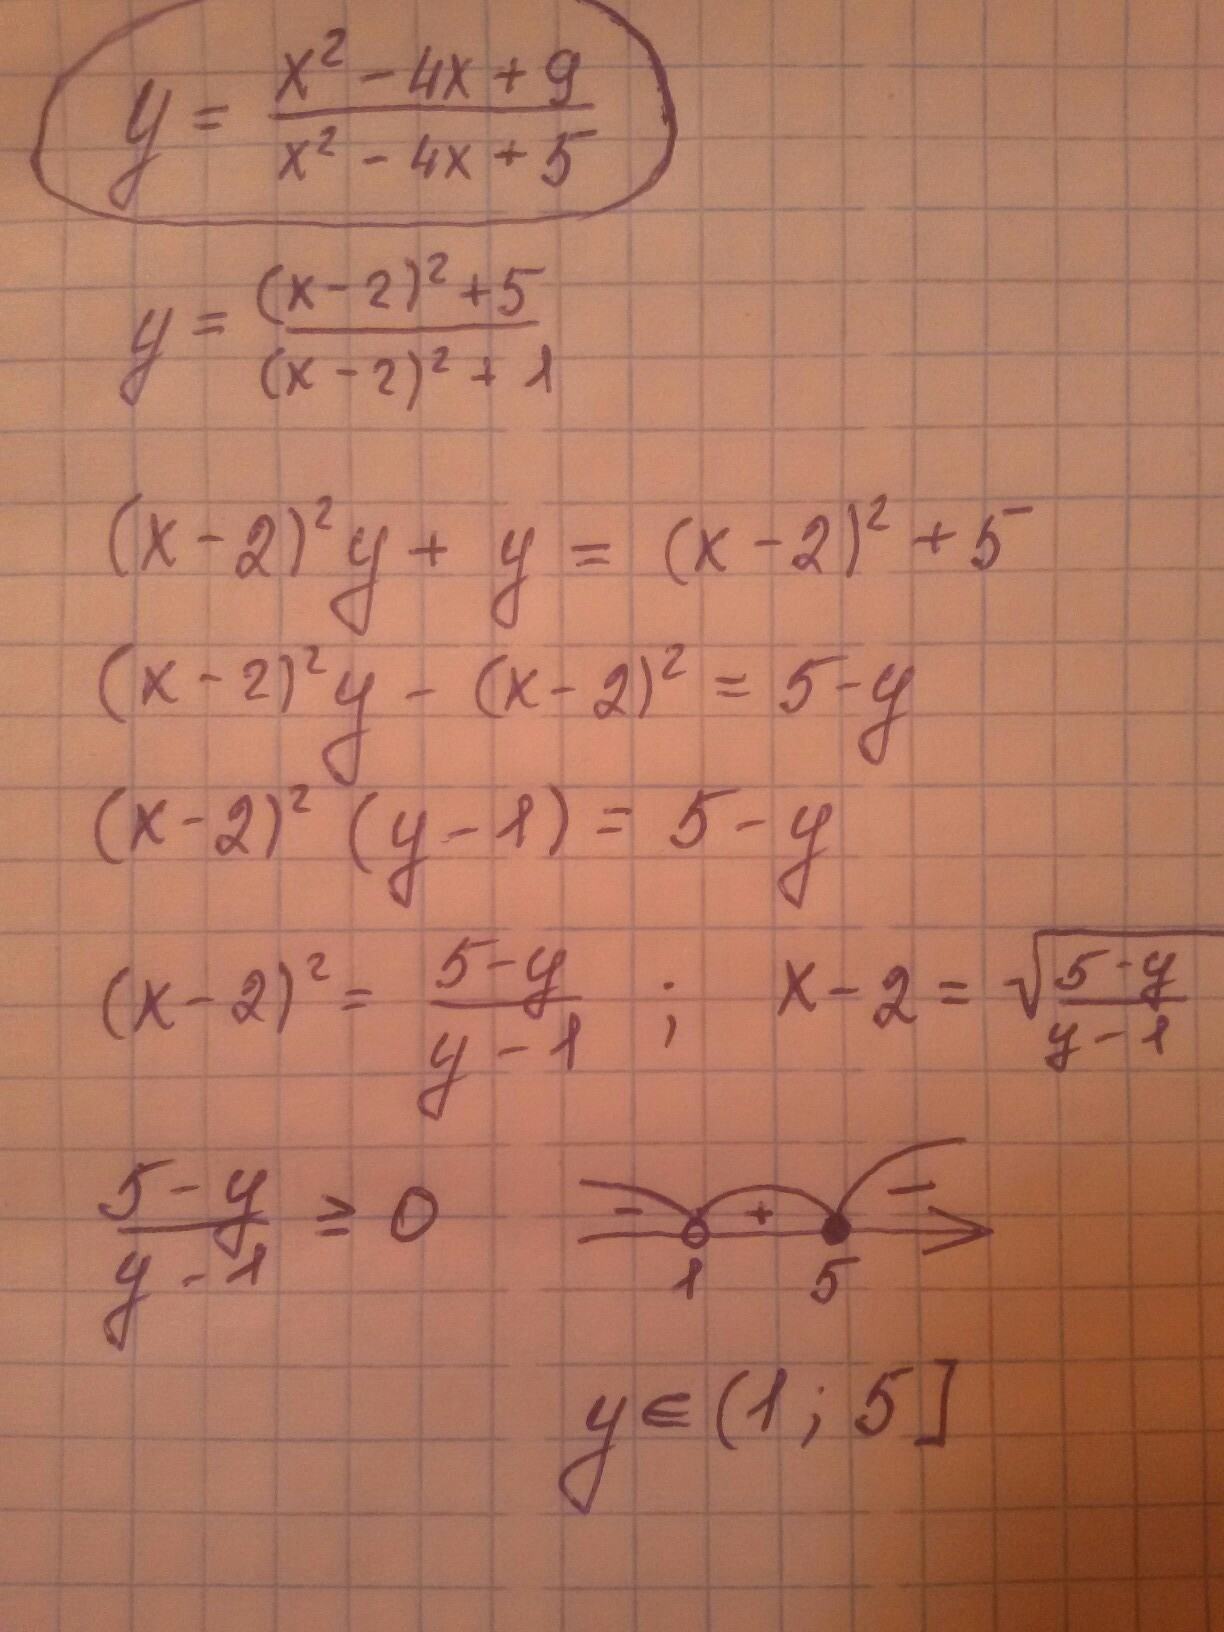 y = (x² - 4x + 9)/(x² - 4x + 5)
y = ((x-2)² + 5)/((x-2)² + 1)
(x-2)² y + y = (x-2)² + 5
(x-2)² y - (x-2)² = 5-y
(x-2)² (y-1) = 5-y
(x-2)² = (5-y)/(y-1) ; x-2 = √((5-y)/(y-1))
(5-y)/(y-1) ≥ 0 - + -
1 5
y ∈ (1; 5]